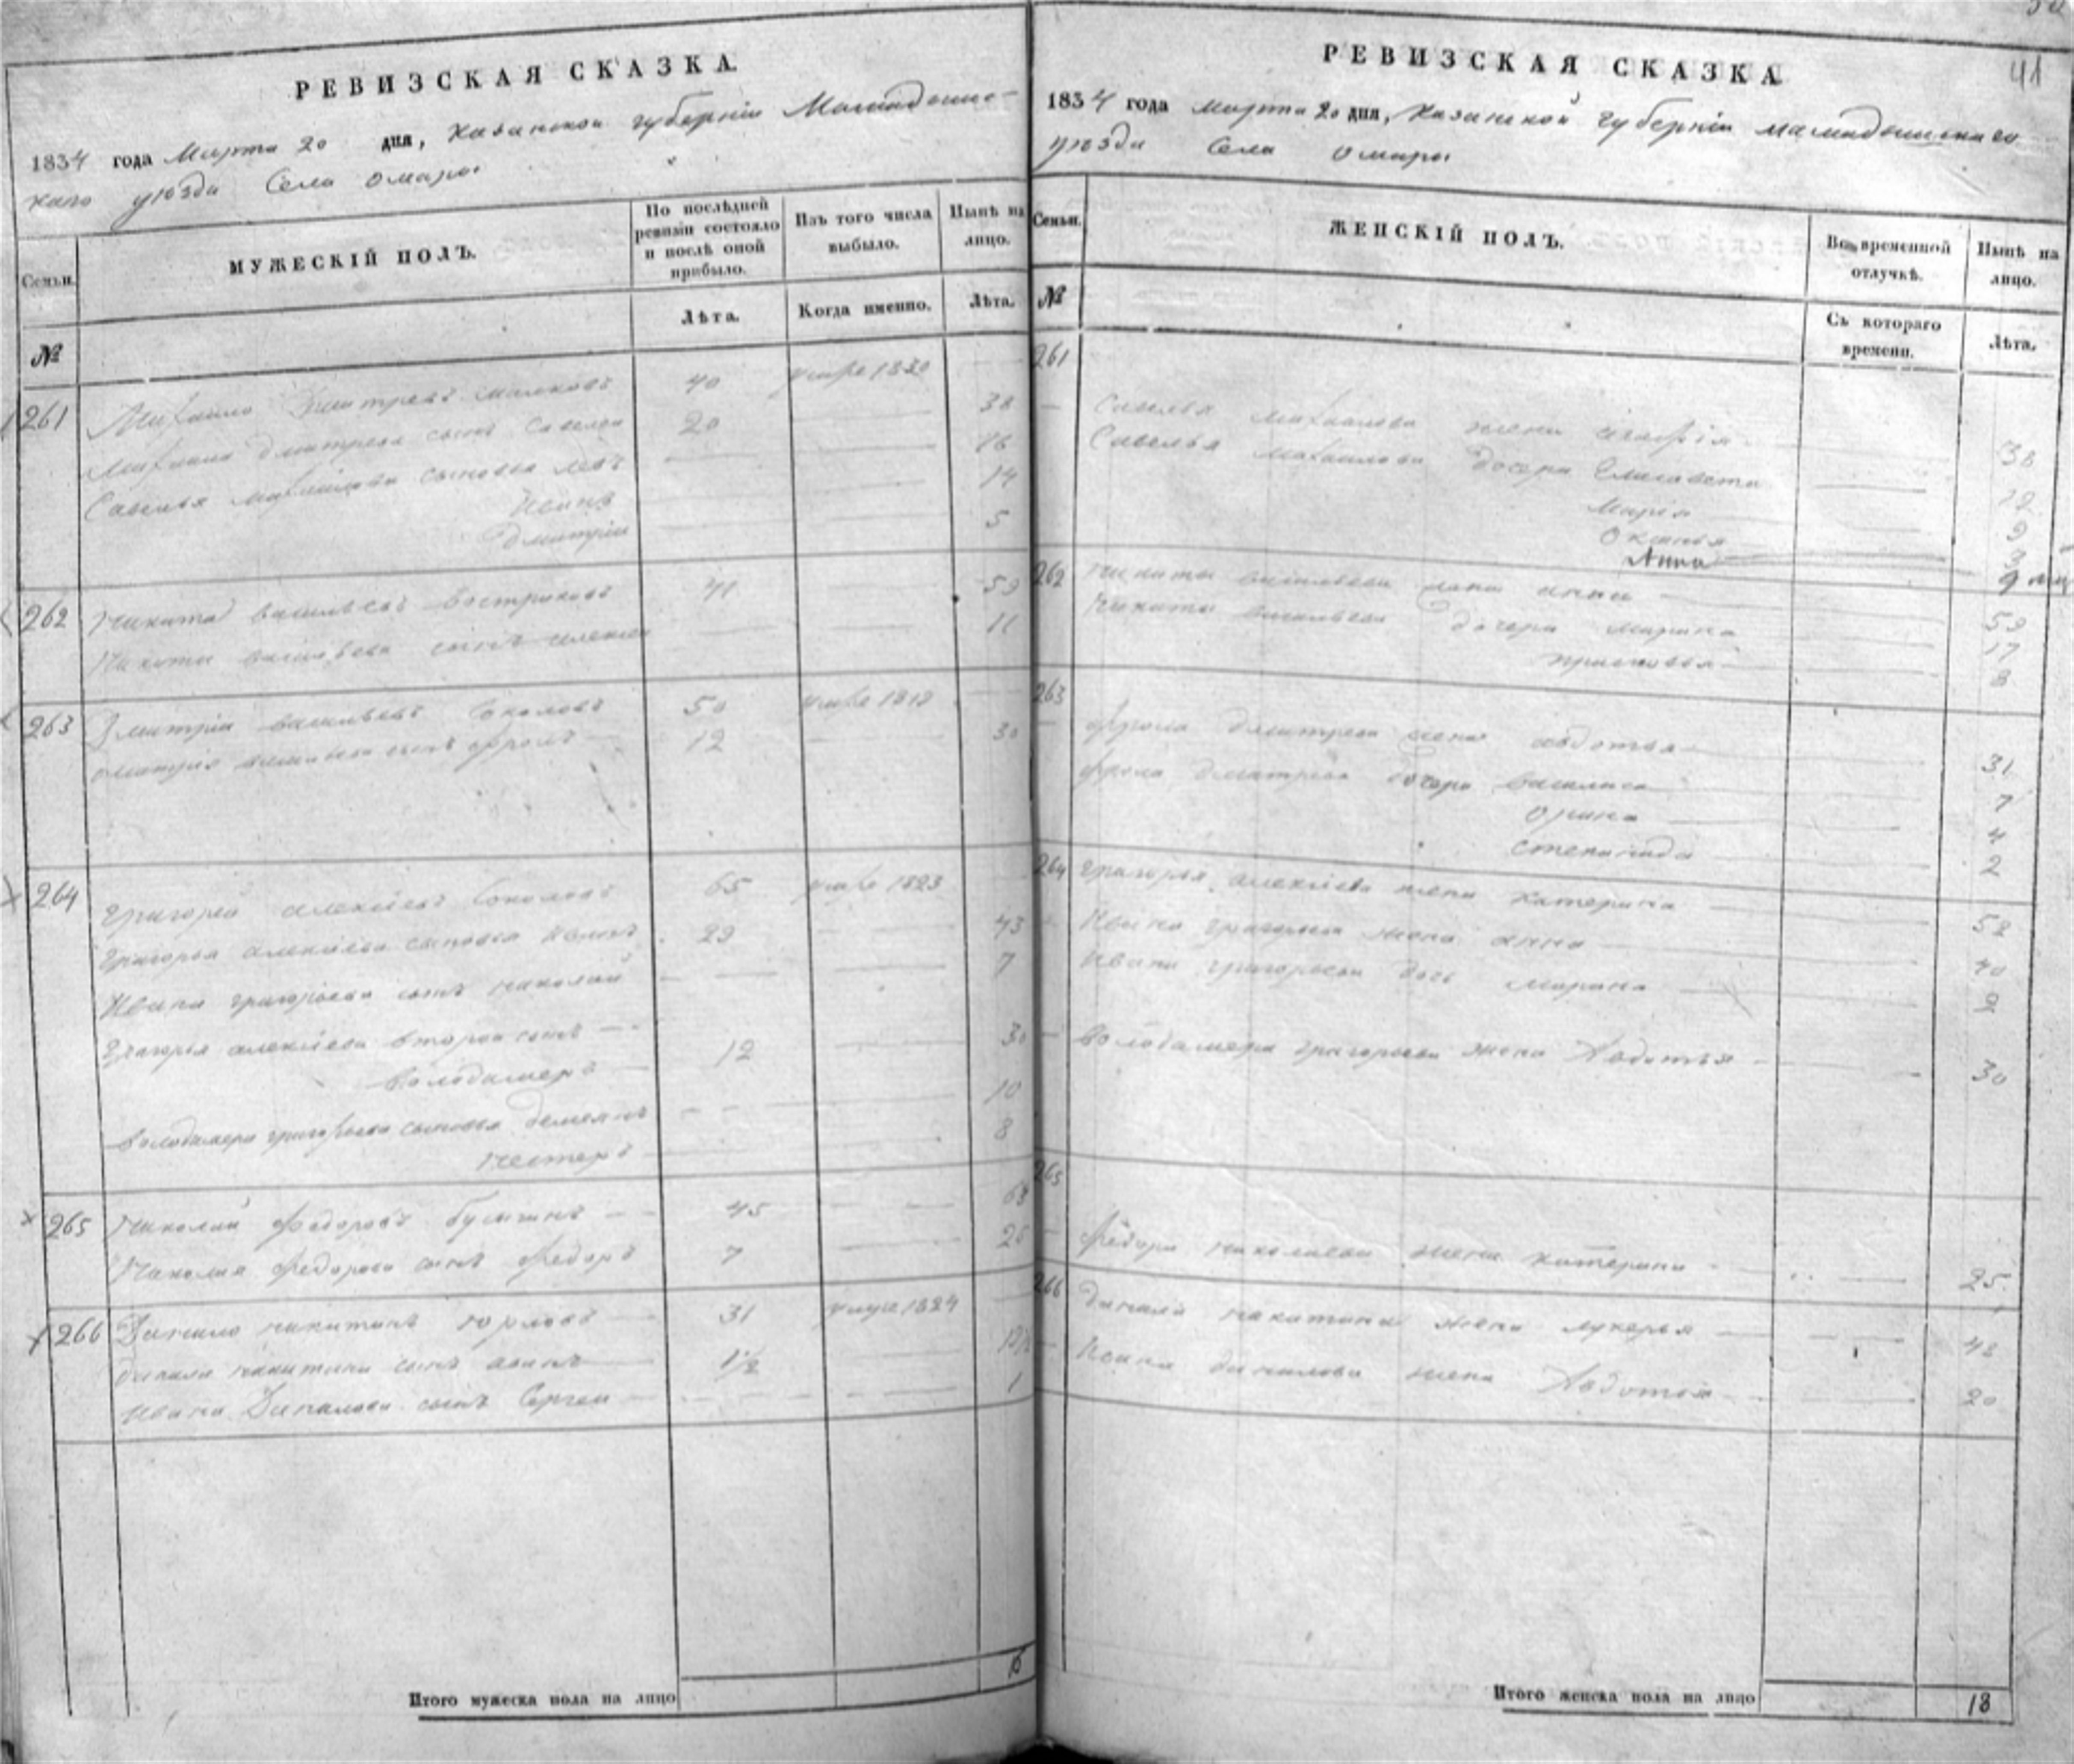 РЕВИЗСКАЯ СКАЗКА.
1834 года Марта 20 дня, Казанской губерніи Мамадышс-
каго уѣзда Села Омары
Семьи.
МУЖЕСКІЙ ПОЛЪ.
По послѣдней ревизіи состояло и послѣ оной прибыло.
Изъ того числа выбыло.
Нынѣ на лицо.
№
Лѣта.
Когда именно.
Лѣта.
261 Михайло Дмитревъ 40 умре 1830
Михаила Дмитрева сынъ Савелей 20 38
Савелья Михайлова сыновья Левъ 16
Иванъ 14
Дмитрій 5
262 Никита Васильевъ Востриковъ 41 59
Никиты Васильева сынъ Алексей 11
263 Дмитрій Васильевъ Соколовъ 50 умре 1818
Дмитрія Васильева сынъ Фролъ 12 30
264 Григорей Алексѣевъ Соколовъ 65 умре 1823
Григорья Алексѣева сыновья Иванъ 29 43
Ивана Григорьева сынъ Николай 7
Григорья Алексѣева второй сынъ
Володимеръ 12 30
Володимера Григорьева сыновья Демеянъ 10
Нестеръ 8
265 Николай Федоровъ 45 63
Николая Федорова сынъ Федоръ 7 25
266 Данило Никитинъ Юрловъ 31 умре 1824
Данила Никитина сынъ Иванъ 1½
Ивана Данилова сынъ Сергей 1
Итого мужеска пола на лицо
РЕВИЗСКАЯ СКАЗКА
41
1834 года Марта 20 дня, Казанской губерніи Мамадышскаго
уѣзда Села Омары
Семьи.
ЖЕНСКІЙ ПОЛЪ.
Во временной отлучкѣ.
Нынѣ на лицо.
№
Съ котораго времени.
Лѣта.
261
Савелья Михайлова жена 38
Савелья Михайлова дочери Елисавета 12
Марія 9
Оксинья 3
Анна 9
262 Никиты Васильева жена Анна 59
Никиты Васильева дочери Марина 17
Прасковья 8
263
Фрола Дмитрева жена Авдотья 31
Фрола Дмитрева дочери Василиса 7
Орина 4
Степанида 2
264 Григорья Алексѣева жена Катерина 58
Ивана Григорьева жена Анна 40
Ивана Григорьева дочь Марина 2
Володимера Григорьева жена Авдотья 30
265
Федора Николаева жена Катерина 25
266 Данила Никитина жена Лукерья 48
Ивана Данилова жена Авдотья 20
Итого женска пола на лицо 18